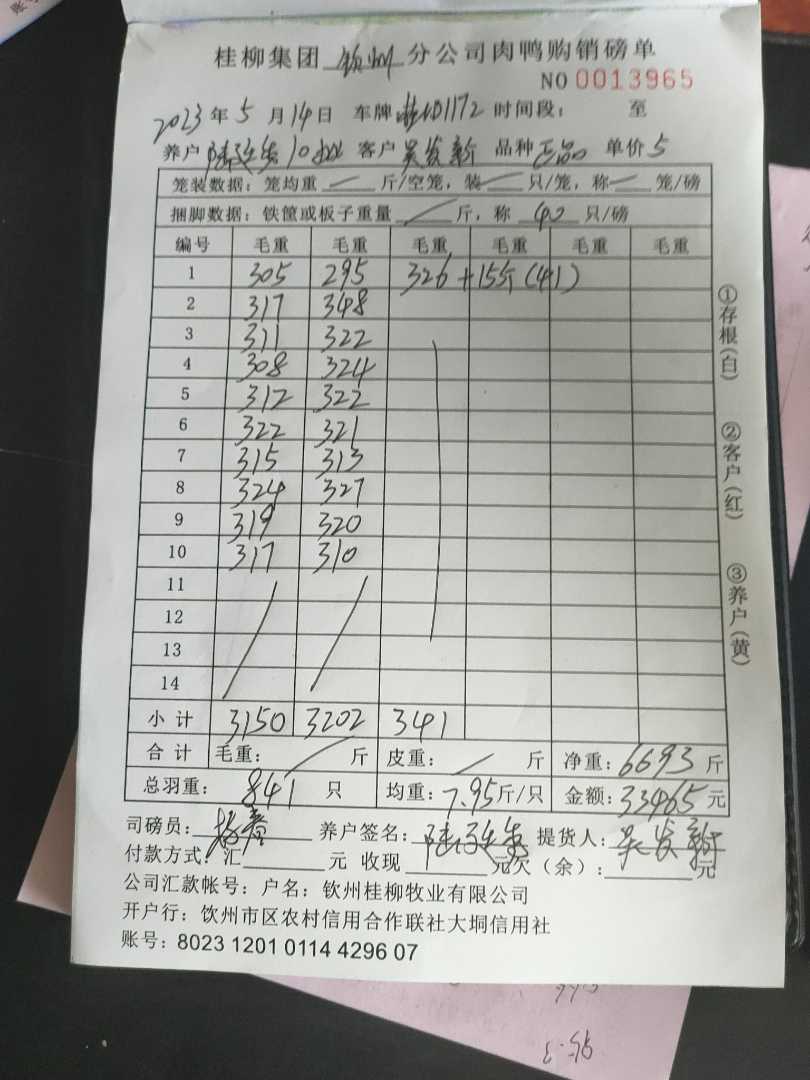 桂柳集团 钦州 分公司肉鸭购销磅单
NO 0013965
2023 年 5 月 14 日 车牌 1172 时间段： 至
养户 客户 吴发新 品种 正品 单价 5
笼装数据：笼均重 — 斤/空笼，装 — 只/笼，称 — 笼/磅
捆脚数据：铁筐或板子重量 / 斤，称 40 只/磅
编号 毛重 毛重 毛重 毛重 毛重 毛重
1 305 295 326 + 15斤 (41)
2 317 348
3 311 322
4 308 324
5 312 322
6 322 321
7 315 313
8 324 327
9 319 320
10 317 310
11
12
13
14
小计 3150 3202 341
合计 毛重： / 斤 皮重： / 斤 净重：6693 斤
总羽重：841 只 均重：7.95 斤/只 金额：33465 元
司磅员： 养户签名： 提货人：吴发新
付款方式：汇 元 收现 元欠（余）： 元
公司汇款帐号：户名：钦州桂柳牧业有限公司
开户行：钦州市区农村信用合作联社大垌信用社
账号：8023 1201 0114 4296 07
①存根(白)
②客户(红)
③养户(黄)